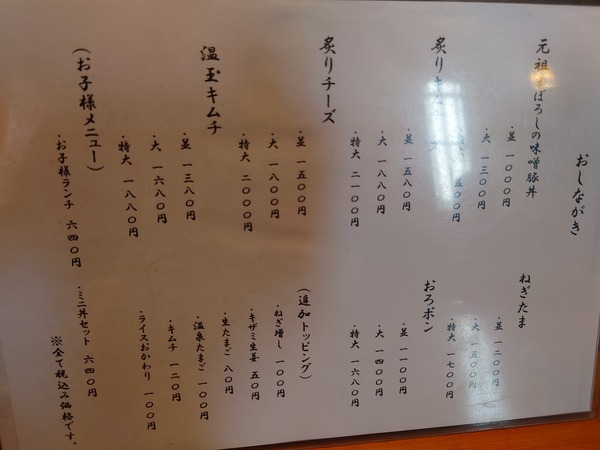 おしながき
元祖まぼろしの味噌豚丼
・並 一〇〇〇円
・大 一三〇〇円
五〇〇円
炙りキム
・並 一五八〇円
・大 一八八〇円
・特大 二一〇〇円
炙りチーズ
・並 一五〇〇円
・大 一八〇〇円
・特大 二〇〇〇円
温玉キムチ
・並 一三八〇円
・大 一六八〇円
・特大 一八八〇円
(お子様メニュー)
・お子様ランチ 六四〇円
・ミニ丼セット 六四〇円
ねぎたま
・並 一二〇〇円
・大 一五〇〇円
・特大 一七〇〇円
おろポン
・並 一一〇〇円
・大 一四〇〇円
・特大 一六八〇円
(追加トッピング)
・ねぎ増し 一〇〇円
・キザミ生姜 五〇円
・生たまご 八〇円
・温泉たまご 一〇〇円
・キムチ 一二〇円
・ライスおかわり 一〇〇円
※全て税込み価格です。